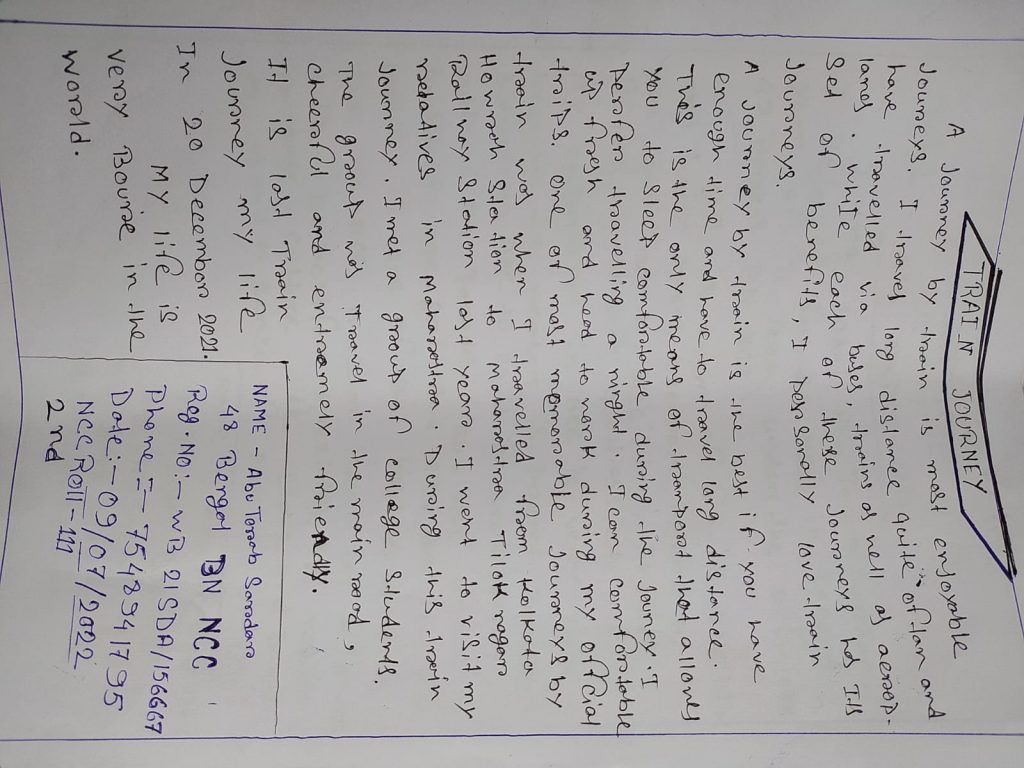 TRAIN JOURNEY
A Journey by train is most enjoyable
Journeys. I travel long distance quite often and
have travelled via buses, trains as well as aerop-
lans. while each of these Journeys has Its
Set of benefits, I personally love train
Journeys.
A Journey by train is the best if you have
enough time and have to travel long distance.
This is the only means of transport that allows
you to sleep comfortable during the Journey. I
Perofer travelling a night. I can comfortable
up fresh and head to work during my official
traips. one of most memorable Journeys by
train was when I travelled from Kolkata
Howrah Station to Maharastra Tilok nagar
Railway Station last years. I went to visit my
relatives in Maharastra. During this train
Journney. I met a group of college Students.
The group was Travel in the main road,
cheerful and extremely friendly.
It is last Train
Journey my life
In 20 December 2021.
MY life is
very Bourse in the
world.
NAME - Abu Torab Sardar
48 Bengal BN NCC
Reg. No:- WB 21SDA/156667
Phone:- 7548941795
Date:- 09/07/2022
NCC Roll- 111
2nd